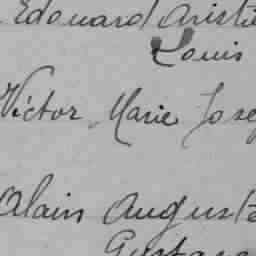 Edouard Aristi
Louis
Victor Marie Jose
Alain Auguste
Gustave